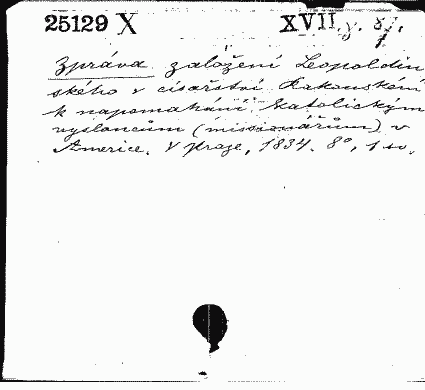 25129 X XVII. y. 87.
Zpráva založení Leopoldin
ského v císařství Rakouském
k napomahání katolickým
vyslancům (missionářům) v
Americe. V Praze, 1834. 8°, 1 sv.